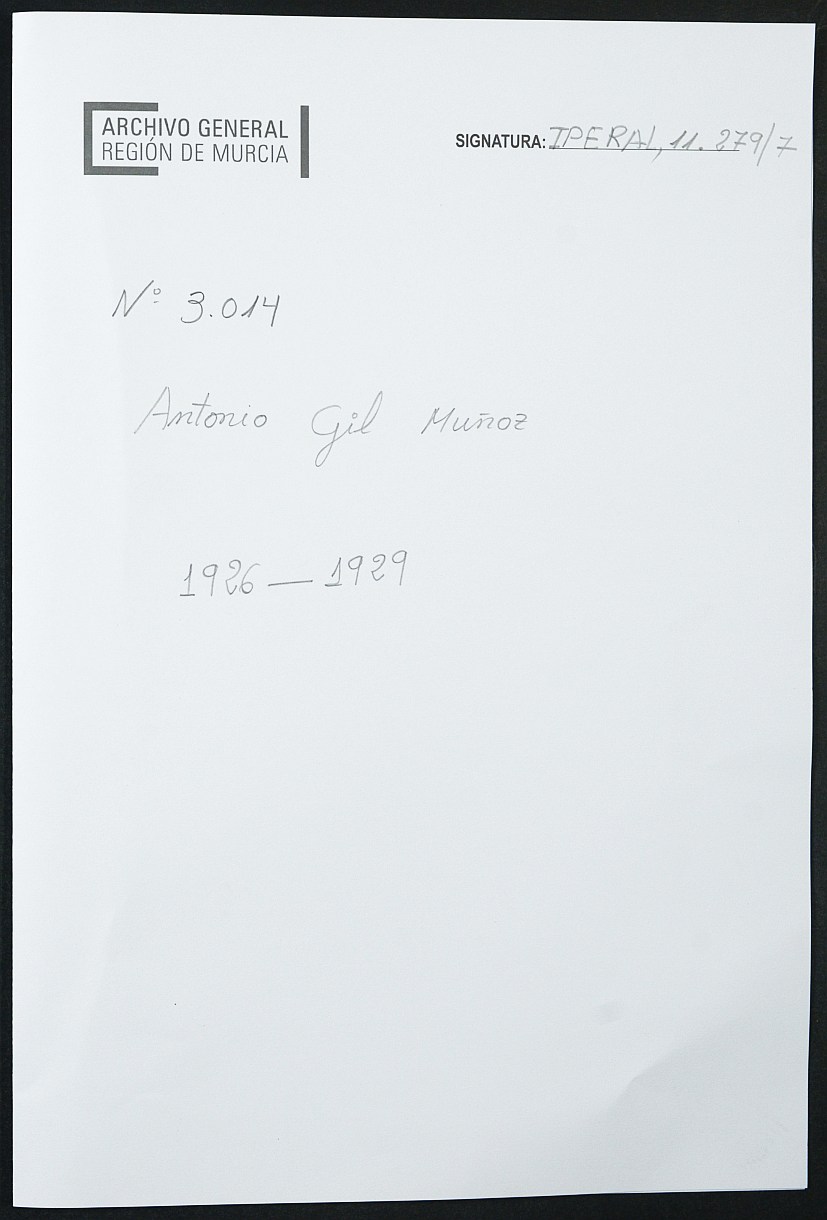 ARCHIVO GENERAL
REGIÓN DE MURCIA
SIGNATURA: IPERAL, 11.279/7
Nº 3.014
Antonio Gil Muñoz
1926 — 1929